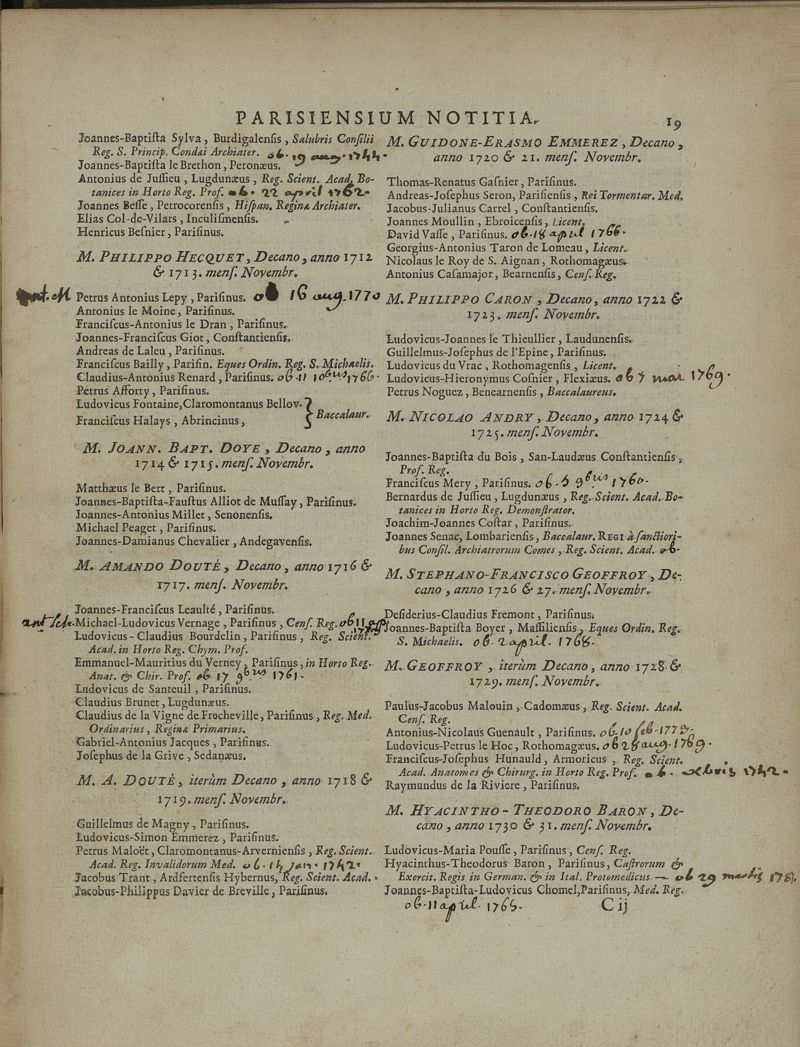 PARISIENSIUM NOTITIA.
19
Joannes-Baptiſta Sylva, Burdigalenſis, Salubris Conſilii
Reg. S. Princip. Condai Archiater. ob. 19 aug. 1744.
Joannes-Baptiſta le Brethon, Peronæus.
Antonius de Juſſieu, Lugdunæus, Reg. Scient. Acad. Bo-
tanices in Horto Reg. Prof. ob. 22 april 1762.
Joannes Beſſe, Petrocorenſis, Hiſpan. Reginæ Archiater.
Elias Col-de-Vilars, Inculiſmenſis.
Henricus Beſnier, Pariſinus.
M. PHILIPPO HECQUET, Decano, anno 1712
& 1713. menſ. Novembr.
Petrus Antonius Lepy, Pariſinus. ob 16 aug. 1770
Antonius le Moine, Pariſinus.
Franciſcus-Antonius le Dran, Pariſinus.
Joannes-Franciſcus Giot, Conſtantienſis.
Andreas de Laleu, Pariſinus.
Franciſcus Bailly, Pariſin. Eques Ordin. Reg. S. Michaelis.
Claudius-Antonius Renard, Pariſinus. ob. 11 10bris 1766.
Petrus Afforty, Pariſinus.
Ludovicus Fontaine, Claromontanus Bellov.
Franciſcus Halays, Abrincinus, } Baccalaur.
M. JOANN. BAPT. DOYE, Decano, anno
1714 & 1715. menſ. Novembr.
Matthæus le Bert, Pariſinus.
Joannes-Baptiſta-Fauſtus Alliot de Muſſay, Pariſinus.
Joannes-Antonius Millet, Senonenſis.
Michael Peaget, Pariſinus.
Joannes-Damianus Chevalier, Andegavenſis.
M. AMANDO DOUTÉ, Decano, anno 1716 &
1717. menſ. Novembr.
Joannes-Franciſcus Leaulté, Pariſinus.
Michael-Ludovicus Vernage, Pariſinus, Cenſ. Reg. ob 11
Ludovicus-Claudius Bourdelin, Pariſinus, Reg. Scient.
Acad. in Horto Reg. Chym. Prof.
Emmanuel-Mauritius du Verney, Pariſinus, in Horto Reg.
Anat. & Chir. Prof. ob 17 9bris 1761.
Ludovicus de Santeuil, Pariſinus.
Claudius Brunet, Lugdunæus.
Claudius de la Vigne de Frecheville, Pariſinus, Reg. Med.
Ordinarius, Reginæ Primarius.
Gabriel-Antonius Jacques, Pariſinus.
Joſephus de la Grive, Sedanæus.
M. A. DOUTÉ, iterùm Decano, anno 1718 &
1719. menſ. Novembr.
Guillelmus de Magny, Pariſinus.
Ludovicus-Simon Emmerez, Pariſinus.
Petrus Maloët, Claromontanus-Arvernienſis, Reg. Scient.
Acad. Reg. Invalidorum Med. ob. 14 jan. 1742.
Jacobus Trant, Ardfertenſis Hybernus, Reg. Scient. Acad.
Jacobus-Philippus Davier de Breville, Pariſinus.
M. GUIDONE-ERASMO EMMEREZ, Decano,
anno 1720 & 21. menſ. Novembr.
Thomas-Renatus Gaſnier, Pariſinus.
Andreas-Joſephus Seron, Pariſienſis, Rei Tormentar. Med.
Jacobus-Julianus Carrel, Conſtantienſis.
Joannes Moullin, Ebroicenſis, Licent.
David Vaſſe, Pariſinus. ob. 18 april 1766.
Georgius-Antonius Taron de Lomeau, Licent.
Nicolaus le Roy de S. Aignan, Rothomagæus.
Antonius Caſamajor, Bearnenſis, Cenſ. Reg.
M. PHILIPPO CARON, Decano, anno 1722 &
1723. menſ. Novembr.
Ludovicus-Joannes le Thieullier, Laudunenſis.
Guillelmus-Joſephus de l'Epine, Pariſinus.
Ludovicus du Vrac, Rothomagenſis, Licent.
Ludovicus-Hieronymus Coſnier, Flexiæus. ob 7 mai 1769.
Petrus Noguez, Benearnenſis, Baccalaureus.
M. NICOLAO ANDRY, Decano, anno 1724 &
1725. menſ. Novembr.
Joannes-Baptiſta du Bois, San-Laudæus Conſtantienſis,
Prof. Reg.
Franciſcus Mery, Pariſinus. ob. 5 9bris 1760.
Bernardus de Juſſieu, Lugdunæus, Reg. Scient. Acad. Bo-
tanices in Horto Reg. Demonſtrator.
Joachim-Joannes Coſtar, Pariſinus.
Joannes Senac, Lombarienſis, Baccalaur. REGI à ſanctiori-
bus Conſil. Archiatrorum Comes, Reg. Scient. Acad. ob.
M. STEPHANO-FRANCISCO GEOFFROY, De-
cano, anno 1726 & 27. menſ. Novembr.
Deſiderius-Claudius Fremont, Pariſinus.
Joannes-Baptiſta Boyer, Maſſilienſis, Eques Ordin. Reg.
S. Michaelis. ob. 2 april. 1768.
M. GEOFFROY, iterùm Decano, anno 1728 &
1729. menſ. Novembr.
Paulus-Jacobus Malouin, Cadomæus, Reg. Scient. Acad.
Cenſ. Reg.
Antonius-Nicolaus Guenault, Pariſinus. ob. 10 feb. 1772.
Ludovicus-Petrus le Hoc, Rothomagæus. ob 28 aug. 1769.
Franciſcus-Joſephus Hunauld, Armoricus, Reg. Scient.
Acad. Anatomes & Chirurg. in Horto Reg. Prof. ob. Xbris 1742.
Raymundus de la Riviere, Pariſinus.
M. HYACINTHO-THEODORO BARON, De-
cano, anno 1730 & 31. menſ. Novembr.
Ludovicus-Maria Pouſſe, Pariſinus, Cenſ. Reg.
Hyacinthus-Theodorus Baron, Pariſinus, Caſtrorum &
Exercit. Regis in German. & in Ital. Protomedicus — ob 29 martis 1787.
Joannes-Baptiſta-Ludovicus Chomel, Pariſinus, Med. Reg.
ob. 11 april. 1765.
C ij